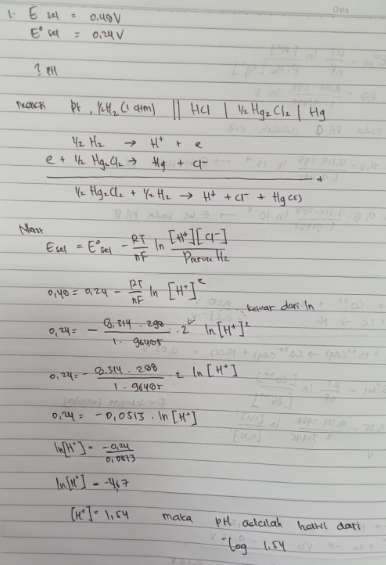 1. E sel = 0,48V
E° sel = 0,24V
? pH
Reaksi Pt, ½H₂ (1 atm) || HCl | ½ Hg₂Cl₂ | Hg
½ H₂ → H⁺ + e
e + ½ Hg₂Cl₂ → Hg + Cl⁻
½ Hg₂Cl₂ + ½ H₂ → H⁺ + Cl⁻ + Hg(s)
E sel = E° sel - RT/nF ln [H⁺][Cl⁻]/Pressure H₂
0,48 = 0,24 - RT/nF ln [H⁺]²
keluar dari ln
0,24 = - 8,314 . 298/1 . 96485 . 2 ln [H⁺]²
0,24 = - 8,314 . 298/1 . 96485 . 2 ln [H⁺]
0,24 = -0,0513 . ln [H⁺]
ln[H⁺] = -0,24/0,0513
ln[H⁺] = -4,67
[H⁺] = 1,54 maka pH adalah hasil dari
-log 1.54